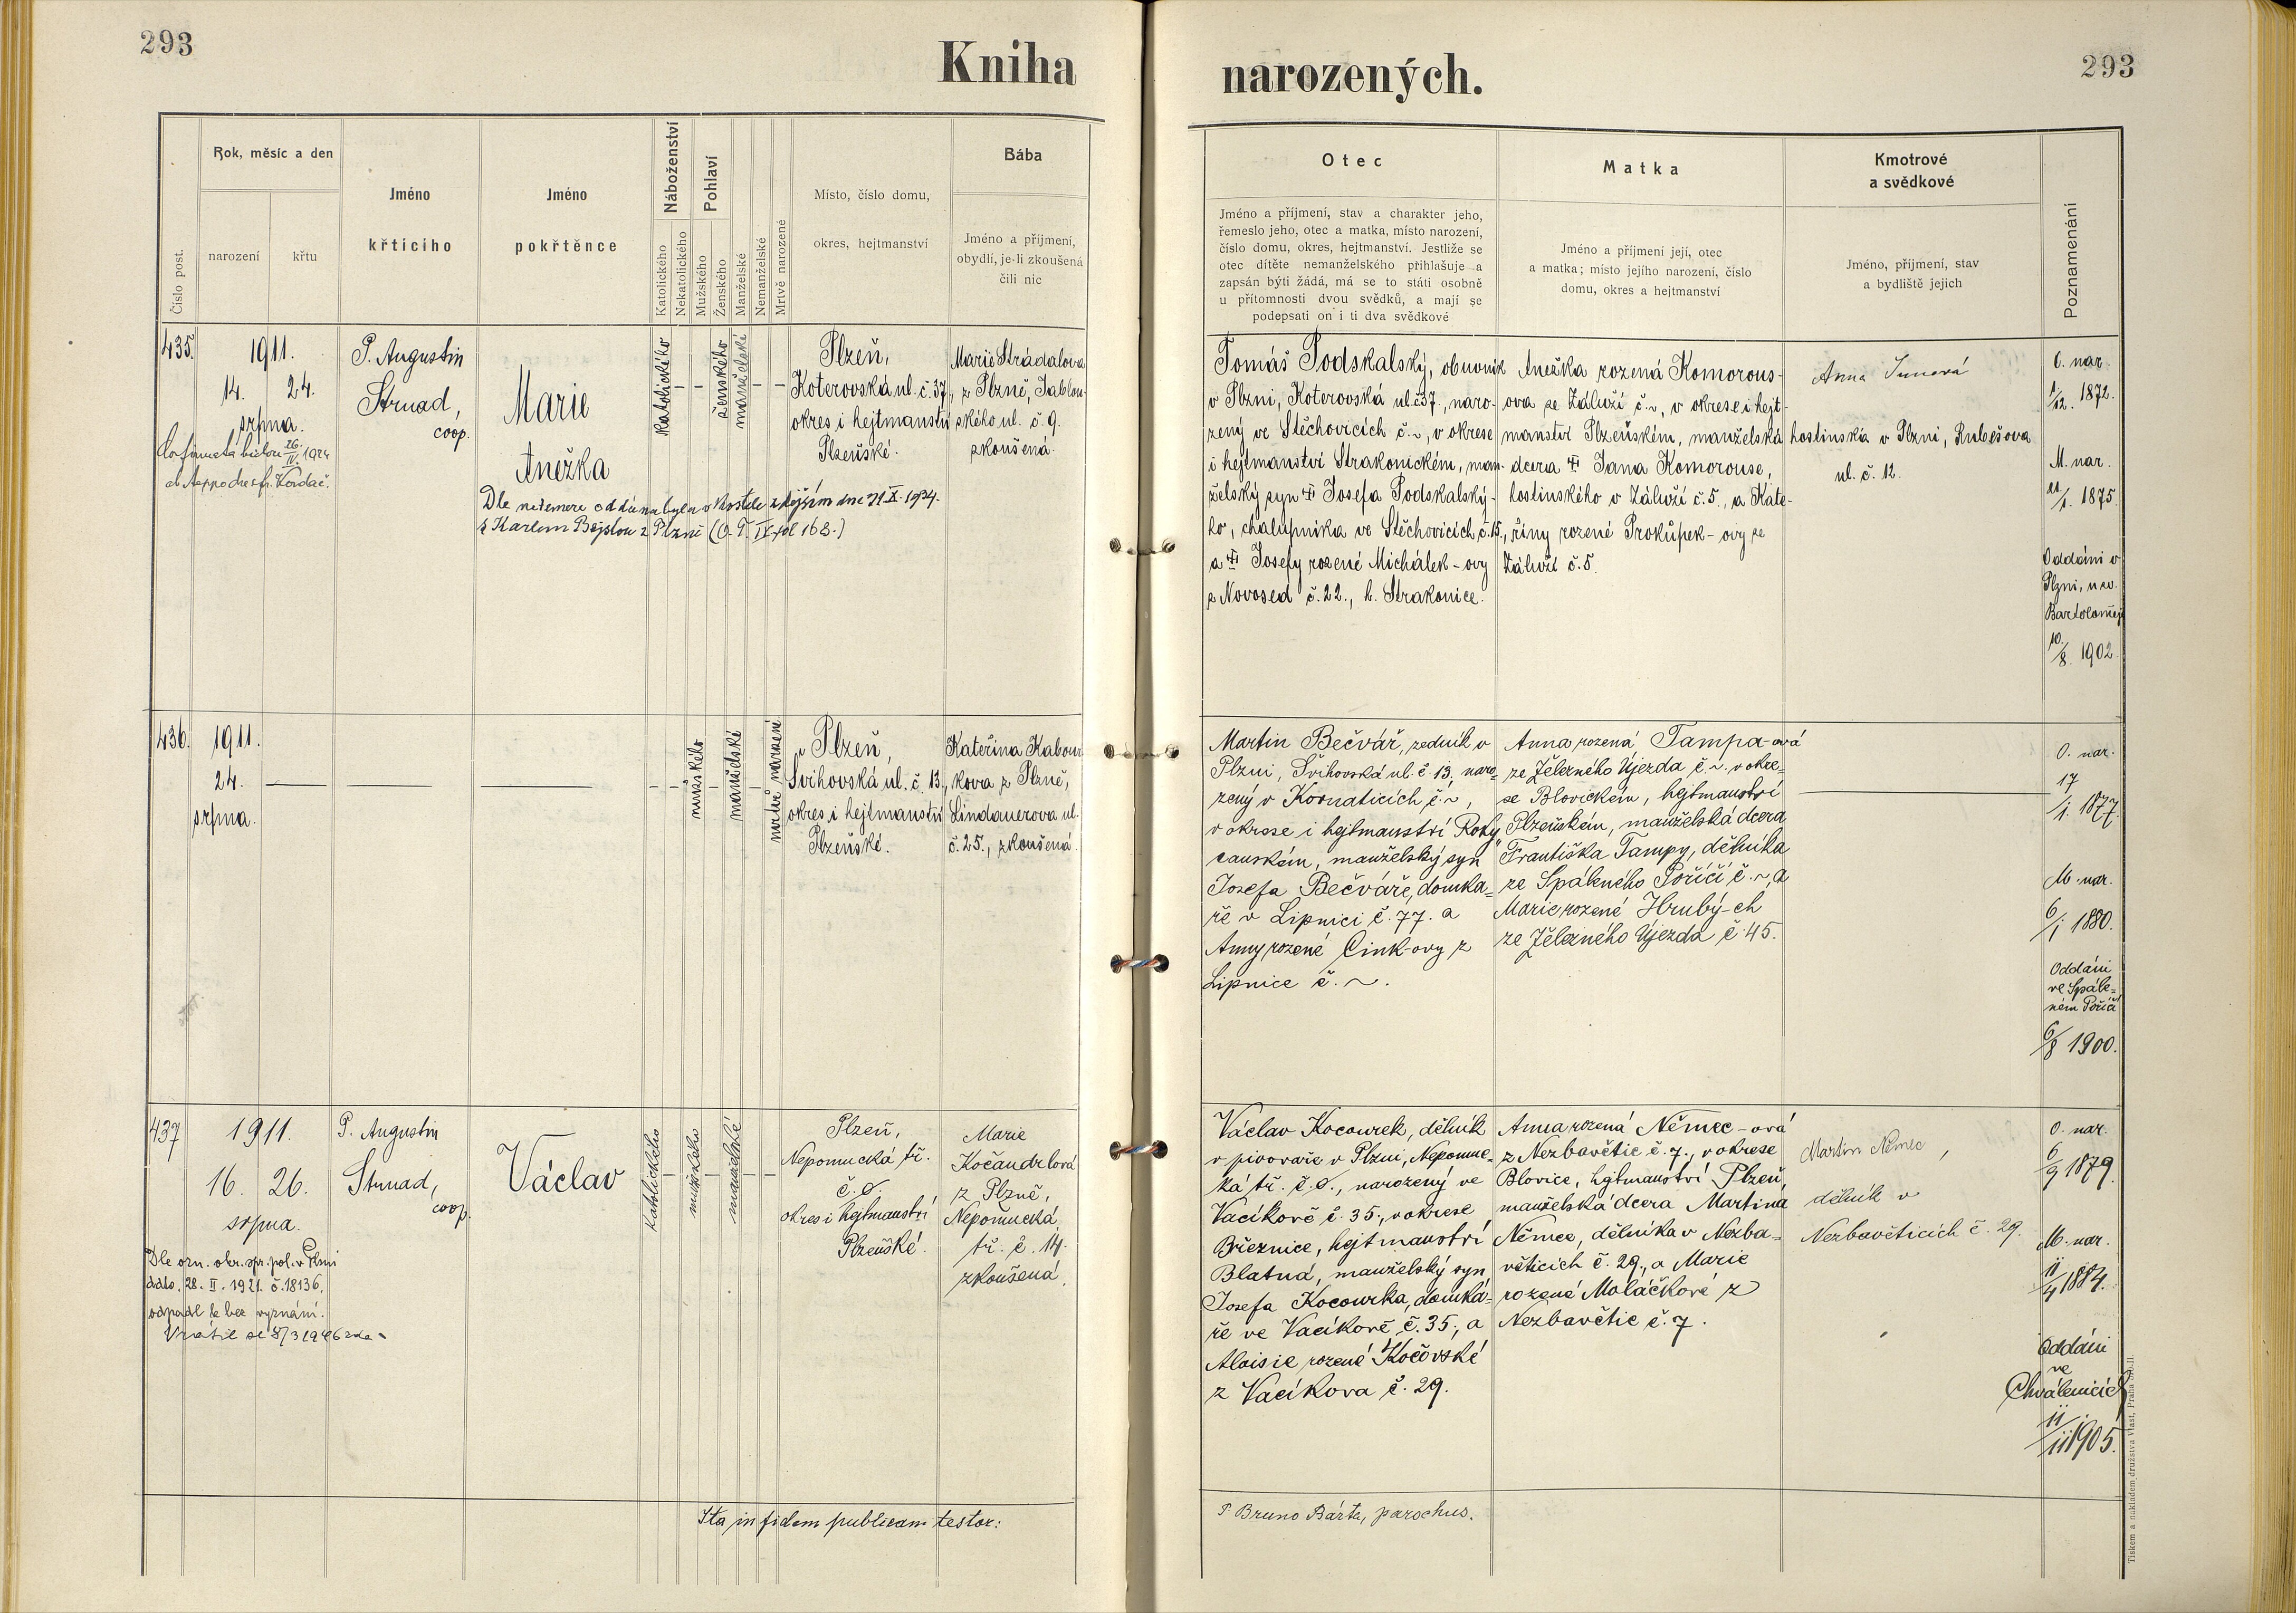 293
Kniha
narozených.
293
Číslo post.
Rok, měsíc a den
narození
křtu
Jméno
křticího
Jméno
pokřtěnce
Náboženství
Katolického
Nekatolického
Pohlaví
Mužského
Ženského
Manželské
Nemanželské
Mrtvě narozené
Místo, číslo domu,
okres, hejtmanství
Bába
Jméno a příjmení,
obydlí, je-li zkoušená
čili nic
Otec
Jméno a příjmení, stav a charakter jeho,
řemeslo jeho, otec a matka, místo narození,
číslo domu, okres, hejtmanství. Jestliže se
otec dítěte nemanželského přihlašuje a
zapsán býti žádá, má se to státi osobně
u přítomnosti dvou svědků, a mají se
podepsati on i ti dva svědkové
Matka
Jméno a příjmení její, otec
a matka; místo jejího narození, číslo
domu, okres a hejtmanství
Kmotrové
a svědkové
Jméno, příjmení, stav
a bydliště jejich
Poznamenání
435.
1911.
14. 24.
srpna.
P. Augustin
Strnad,
coop.
Marie
Anežka
Dle oddána byla v kostele zdejším dne 1924.
s Karlem z Plzně (O. T. IX fol 168.)
katolického
–
–
ženského
manželské
–
–
Plzeň,
Koterovská ul. č. 37,
okres i hejtmanství
Plzeňské.
Marie Strádalova
z Plzně, Jablon-
ského ul. č. 9.
zkoušená.
Tomáš Podskalský, obuvník
v Plzni, Koterovská ul. č 37., naro-
zený ve Stěchovicích č. ~, v okrese
i hejtmanství Strakonickém, man-
želský syn † Josefa Podskalský-
ho, chalupníka ve Stěchovicích č. 15.,
a † Josefy rozené Michálek-ovy
z Novosed č. 22., h. Strakonice.
Anežka rozená Komorous-
ova ze Záluží č. ~, v okrese i hejt-
manství Plzeňském, manželská
dcera † Jana Komorouse,
hostinského v Záluží č. 5., a Kate-
řiny rozené Prokůpek-ovy ze
Záluží č. 5.
Anna
hostinská v Plzni, Rubešova
ul. č. 12.
O. nar.
1/12. 1872.
M. nar.
21/1. 1875.
Oddáni v
Plzni, u sv.
Bartoloměje
10./8. 1902.
436.
1911.
24.
srpna.
–
–
mužského
–
manželské
–
mrtvě narozené
v Plzeň,
Švihovská ul. č. 13.,
okres i hejtmanství
Plzeňské.
Kateřina Kabour
kova z Plzně,
Lindauerova ul.
č. 25., zkoušená.
Martin Bečvář, zedník v
Plzni, Švihovská ul. č. 13, naro-
zený v Kornaticích č. ~,
v okrese i hejtmanství Roky-
canském, manželský syn
Josefa Bečváře, domka-
ře v Lipnici č. 77. a
Anny rozené Cink-ovy z
Lipnice č. ~.
Anna rozená Tampa-ová
ze Želerného Újezda č. ~. v okre-
se Blovickém, hejtmanství
Plzeňském, manželská dcera
Františka Tampy, dělníka
ze Spáleného Poříčí č. ~, a
Marie rozené Hrubý-ch
ze Želerného Újezda č. 45.
O. nar.
17/1. 1877.
M. nar.
6/1 1880.
Oddáni
ve Spále-
ném Poříčí
6/8 1900.
437
1911.
16. 26.
srpna.
Dle ozn. okr. spr. pol. v Plzni
ddto. 28. II. 1921. č. 18136.
odpadl & bez vyznání.
Vrátil se 8/3 1946
P. Augustin
Strnad,
coop.
Václav
katolického
–
mužského
–
manželské
–
–
Plzeň,
Nepomucká tř.
č. 0.
okres i hejtmanství
Plzeňské.
Marie
Kočandrlová
z Plzně,
Nepomucká
tř. č. 14.
zkoušená.
Václav Kocourek, dělník
v pivovaře v Plzni, Nepomuc-
ká tř. č. 0., narozený ve
Vacíkově č. 35., v okrese
Březnice, hejtmanství
Blatná, manželský syn
Josefa Kocourka, domká-
ře ve Vacíkově č. 35., a
Aloisie rozené Kočovské
z Vacíkova č. 29.
Anna rozená Němec-ová
z Nezbavětic č. 7., v okrese
Blovice, hejtmanství Plzeň,
manželská dcera Martina
Němce, dělníka v Nezba-
věticích č. 29., a Marie
rozené Moláčkové z
Nezbavětic č. 7.
Martin Němec,
dělník v
Nezbavěticích č. 29.
O. nar.
6/9 1879.
M. nar.
11/4 1884.
Oddáni
ve
Chválenicích
11/11 1905.
Ita in fidem publicam testor:
P Bruno Bárta, parochus.
Tiskem a nákladem družstva Vlast, Praha